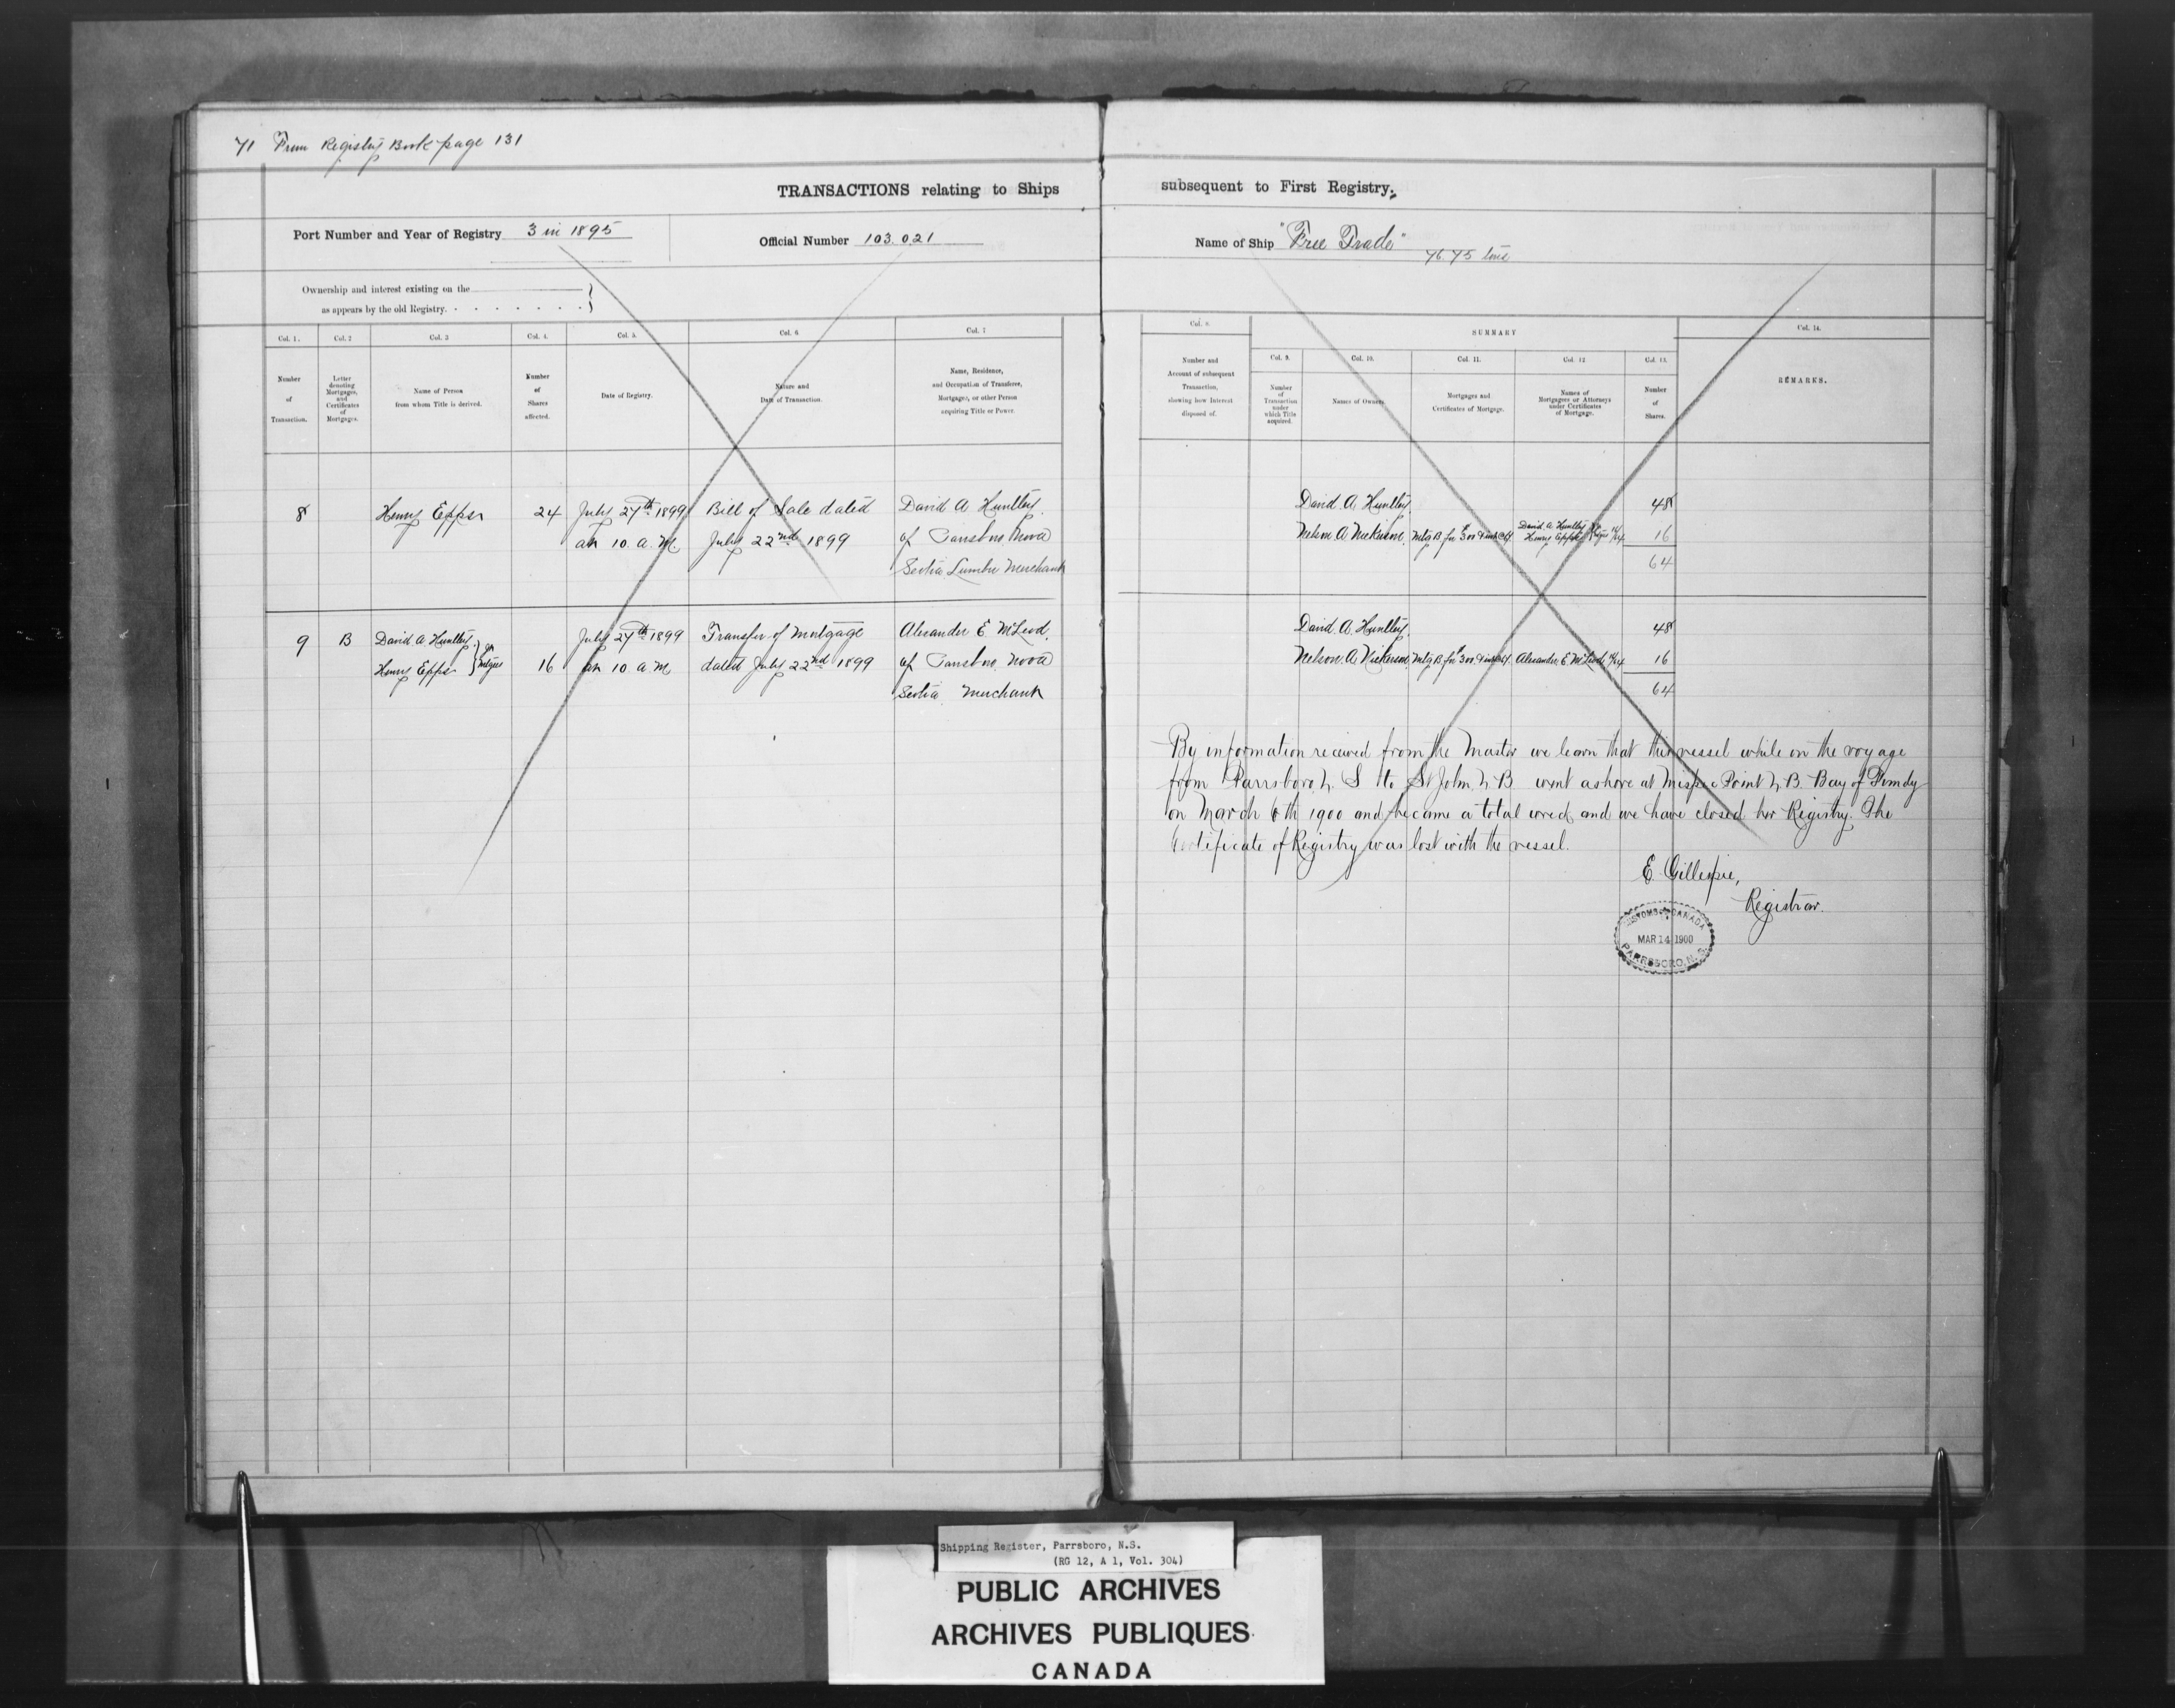 71 From Registry Book page 131
TRANSACTIONS relating to Ships
subsequent to First Registry.
Port Number and Year of Registry 3 in 1895
Official Number 103.021
Name of Ship "Free Trade"
76.75 tons
Ownership and interest existing on the
as appears by the old Registry.
Col. 1. Col. 2 Col. 3 Col. 4. Col. 5. Col. 6 Col. 7
Number of Transaction.
Letter denoting Mortgages, and Certificates of Mortgages.
Name of Person from whom Title is derived.
Number of Shares affected.
Date of Registry.
Nature and Date of Transaction.
Name, Residence, and Occupation of Transferee, Mortgagee, or other Person acquiring Title or Power.
Col. 8.
SUMMARY
Col. 14.
Col. 9. Col. 10. Col. 11. Col. 12 Col. 13.
Number and Account of subsequent Transaction, showing how Interest disposed of.
Number of Transaction under which Title acquired.
Names of Owners.
Mortgages and Certificates of Mortgage.
Names of Mortgagees or Attorneys under Certificates of Mortgage.
Number of Shares.
REMARKS.
8 Henry Epps 24 July 27th 1899 Bill of Sale dated David A Huntley
at 10. a. M July 22nd 1899 of Parrsboro Nova
Scotia Lumber Merchant
David A. Huntley 48
Nelson A Nickerson. Mtg B for 300 & int David A Huntley Henry Epps 16
64
9 B David A Huntley July 27th 1899 Transfer of Mortgage Alexander E McLeod
Henry Epps Jn Mtgees 16 at 10 a M dated July 22nd 1899 of Parrsboro Nova
Scotia Merchant
David A. Huntley 48
Nelson A. Nickerson Mtg B for 300 & int Alexander E McLeod 16
64
By information received from the Master we learn that this vessel while on the voyage
from Parrsboro N. S to St John N B went ashore at Mispec Point N B. Bay of Fundy
on March 6th 1900 and became a total wreck and we have closed her Registry. The
Certificate of Registry was lost with the vessel.
E. Gillespie,
Registrar.
CUSTOMS CANADA
MAR 14 1900
PARRSBORO, N.S.
Shipping Register, Parrsboro, N.S.
(RG 12, A 1, Vol. 304)
PUBLIC ARCHIVES
ARCHIVES PUBLIQUES
CANADA